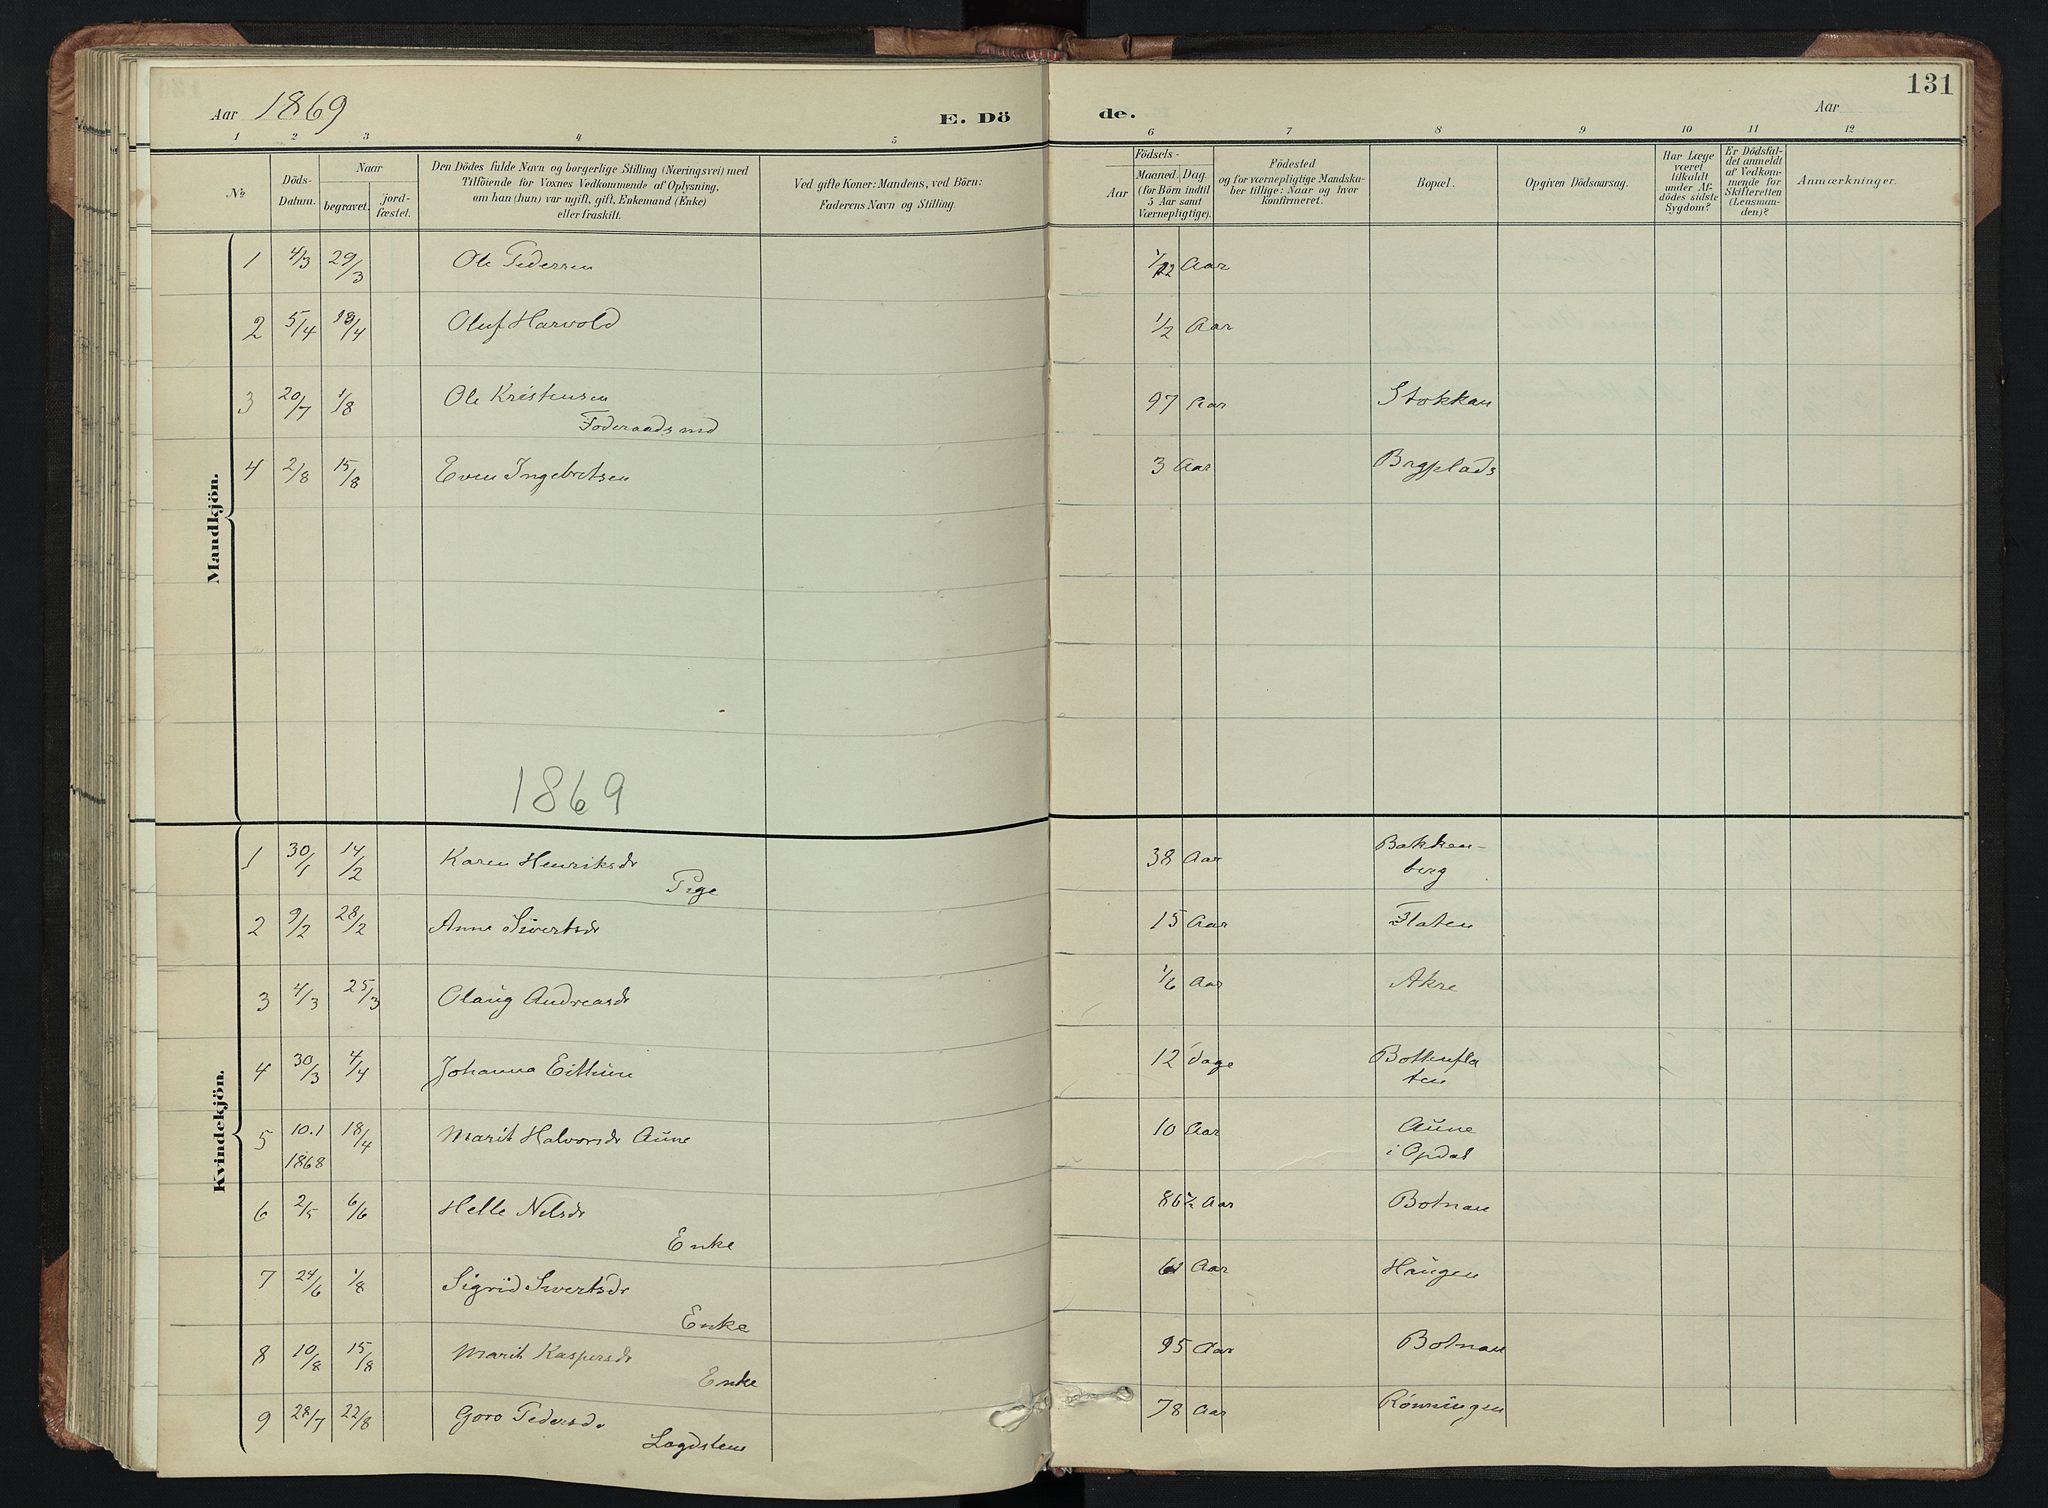 131
Aar 1869 E. Dö de. Aar
1 2 3 4 5 6 7 8 9 10 11 12
No.
Döds-Datum.
Naar
begravet.
jord-fæstet.
Den Dödes fulde Navn og borgerlige Stilling (Næringsvei) med
Tilföiende for Voxnes Vedkommende af Oplysning,
om han (hun) var ugift, gift, Enkemand (Enke)
eller fraskilt.
Ved gifte Koner: Mandens, ved Börn:
Faderens Navn og Stilling.
Födsels-
Aar
Maaned. Dag.
(for Börn indtil
5 Aar samt
Værnepligtige).
Födested
og for værnepligtige Mandska-
ber tillige: Naar og hvor
konfirmeret.
Bopæl.
Opgiven Dödsaarsag.
Har Læge
været
tilkaldt
under Af-
dödes sidste
Sygdom?
Er Dödsfal-
det anmeldt
af Vedkom-
mende for
Skifteretten
(Lensman-
den)?
Anmærkninger.
Mandkjön.
1 4/3 29/3 Ole Pedersen 1/12 Aar
2 5/4 18/4 Oluf Harvold 1/2 Aar
3 20/7 1/8 Ole Kristensen 97 Aar Stokkan
Foderaadsmd
4 2/8 15/8 Even Ingebretsen 3 Aar Brgplads
1869
Kvindekjön.
1 30/1 14/2 Karen Henriksdr 38 Aar Bakken-
Pige berg
2 9/2 28/2 Anne Sivertsdr 15 Aar Flaten
3 4/3 25/3 Olaug Andreasdr 1/6 Aar Akre
4 30/3 4/4 Johanna Eithun 12 dage Bottenfla
ten
5 10.1 18/4 Marit Halvorsdr Aune 10 Aar Aune
1868 i Opdal
6 2/5 6/6 Helle Nilsdr 86 1/2 Aar Botnan
Enke
7 24/6 1/8 Sigrid Sivertsdr Aar Haugen
Enke
8 10/8 15/8 Marit Kaspersdr 95 Aar Botnan
Enke
9 28/7 22/8 Goro Pedersdr 78 Aar Rønningen
Lægdslem